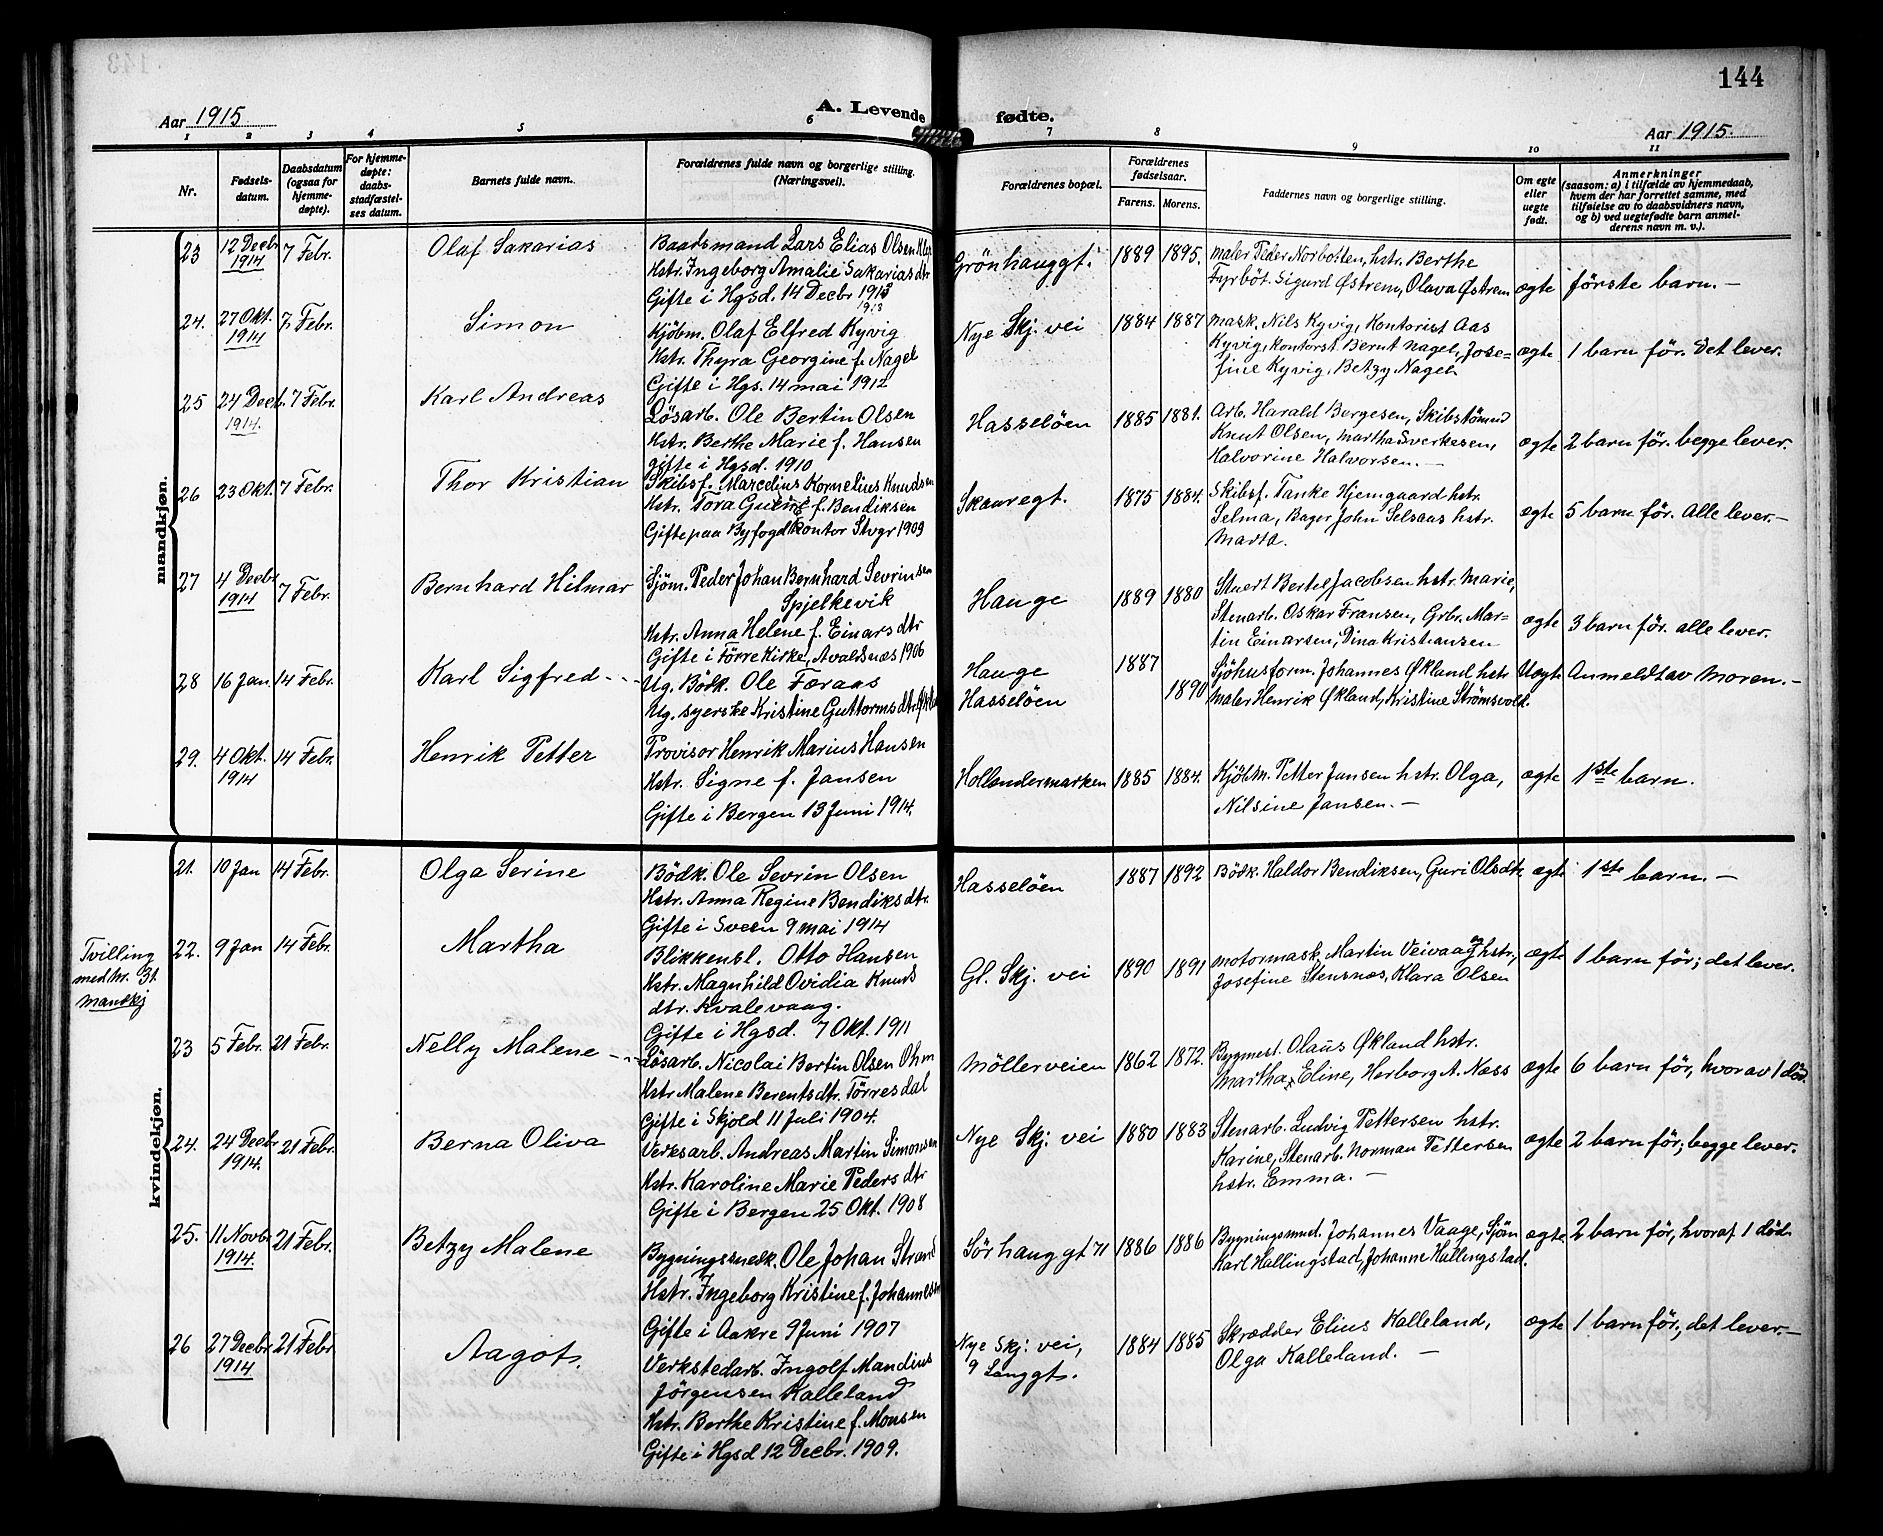 144
Aar 1915
A. Levende fødte.
Aar 1915.
1 2 3 4 5 6 7 8 9 10 11
Nr.
Fødsels-
datum.
Daabsdatum
(ogsaa for
hjemme-
døpte).
For hjemme-
døpte:
daabs-
stadfæstel-
ses datum.
Barnets fulde navn.
Forældrenes fulde navn og borgerlige stilling.
(Næringsvei).
Forældrenes bopæl.
Forældrenes
fødselsaar.
Farens. Morens.
Faddernes navn og borgerlige stilling.
Om egte
eller
uegte
født.
Anmerkninger
(saasom: a) i tilfælde av hjemmedaab,
hvem der har forrettet samme, med
tilføielse av to daabsvidners navn,
og b) ved uegtefødte barn anmel-
derens navn m. v.).
mandkjøn.
23 12 Decbr 7 Febr. Olaf Sakarias
1914
Baadsmand Lars Elias Olsen
Hstr. Ingeborg Amalie Sakariasdtr
Gifte i Hgsd. 14 Decbr 1913
1913
Grönhauggt. 1889 1895.
Maler Peder Norbotten, hstr. Berthe
Fyrböt. Sigurd Østrem, Olava Østrem
ægte förste barn. —
24. 27 Okt. 7 Febr. Simon
1914
Kjöbm. Olaf Elfred Kyvig
Hstr. Thyra Georgine f. Nagel
Gifte i Hgs. 14 mai 1912
Nye Skj. vei 1884 1887
Mask. Nils Kyvig, Kontorist Aas
Kyvig, Kontorst. Bernt Nagel, Jose-
fine Kyvig, Betzy Nagel.
ægte 1 barn för. Det lever.
25 24 Decb. 7 Febr. Karl Andreas
1914.
Lösarb. Ole Bertin Olsen
Hstr. Berthe Marie f. Hansen
gifte i Hgsd. 1910
Hasselöen 1885 1881.
Arb. Harald Borgesen, Skibstömmd
Knut Olsen, Martha Sverkesen,
Halvorine Halvorsen. —
ægte 2 barn för. begge lever.
26 23 Okt. 7 Febr. Thor Kristian
Skibsf. Marcelius Kornelius Knudsen
Hstr. Tora f. Bendiksen
Gifte paa Byfogdkontor Stvgr 1909
Skaaregt. 1875 1884.
Skibsf. Tanke Hjemgaard hstr.
Selma, Bager John Selsaas hstr.
Marta.
ægte 5 barn för. Alle lever. —
27 4 Decbr 7 Febr. Bernhard Hilmar
1914
Sjöm. Peder Johan Bernhard Sevrinsen
Spjelkevik
Hstr. Anna Helene f. Einarsdtr
Gifte i Förre Kirke, Avaldsnæs 1906
Hauge 1889 1880
Stuert Bertel Jacobsen hstr. Marie,
Stenarb. Oskar Fransen, Grbr. Mar-
tin Einarsen, Dina Kristiansen
ægte 3 barn för. alle lever.
28 16 Jan 14 Febr. Karl Sigfred - - -
Ug. Bödk. Ole Færaas
Ug. syerske Kristine Guttormsdtr.
Hauge 1887
Hasselöen 1890
Sjöhusform. Johannes Økland hstr
Maler Henrik Økland, Kristine Strömsvold.
Uægte Anmeldt av Moren. —
29. 4 Okt. 14 Febr. Henrik Petter
1914
Provisor Henrik Marius Hansen
Hstr. Signe f. Jansen
Gifte i Bergen 13 Juni 1914.
Hollendermarken 1885 1884.
Kjöbm. Petter Jansen hstr. Olga,
Nilsine Jansen. —
ægte 1ste barn.
kvindekjøn.
21. 10 Jan 14 Febr. Olga Serine
Bödk. Ole Sevrin Olsen
Hstr. Anna Regine Bendiksdtr.
Gifte i Sveen 9 mai 1914
Hasselöen 1887 1892
Bödk. Haldor Bendiksen, Guri Olsdtr
ægte 1ste barn. —
Tvilling
med Nr. 31
Mandkj
22. 9 Jan 14 Febr. Martha
Blikkensl. Otto Hansen
Hstr. Magnhild Ovidia Knuds
dtr. Kvalevaag.
Gifte i Hgsd. 7 Okt. 1911
Gl. Skj. vei 1890 1891
Motormask. Martin Veivaag hstr,
Josefine Stensnæs, Klara Olsen
ægte 1 barn för; det lever.
23 5 Febr. 21 Febr. Nelly Malene - - -
Lösarb. Nicolai Bertin Olsen Ohm
Hstr Malene Berentsdtr. Törresdal
Gifte i Skjold 11 Juli 1904.
Möllerveien 1862 1872.
Bygmest. Olaus Økland hstr.
Martha, Eline, Herborg A. Næss
ægte 6 barn för, hvorav 1 död.
24. 24 Decbr 21 Febr. Berna Oliva
1914.
Verksarb. Andreas Martin Simonsen
Hstr. Karoline Marie Pedersdtr
Gifte i Bergen 25 Okt. 1908
Nye Skj. vei 1880 1883
Stenarb. Ludvig Pettersen hstr.
Karine, Stenarb. Norman Pettersen
hstr. Emma. —
ægte 2 barn för; begge lever.
25. 11 Novbr. 21 Febr. Betzy Malene
1914.
Bygningssnedk. Ole Johan Strand
Hstr. Ingeborg Kristine f. Johannesen
Gifte i Aakre 9 Juni 1907
Sörhauggt 71 1886 1886
Bygningssned. Johannes Vaage, Sjöm
Karl Hallingstad, Johanne Hallingstad.
ægte 2 barn för, hvoraf 1 död.
26 27 Decbr. 21 Febr Aagot.
1914
Verkstedarb. Ingolf Mandius
Jörgensen Kalleland
Hstr. Berthe Kristine f. Monsen
Gifte i Hgsd 12 Decbr. 1909.
Nye Skj. vei,
9 Langgt. 1884 1885
Skrædder Elius Kalleland,
Olga Kalleland. —
ægte 1 barn för, det lever. —